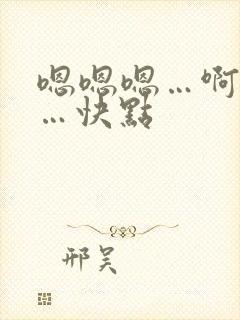 嗯嗯嗯…啊
…快點
邢昊